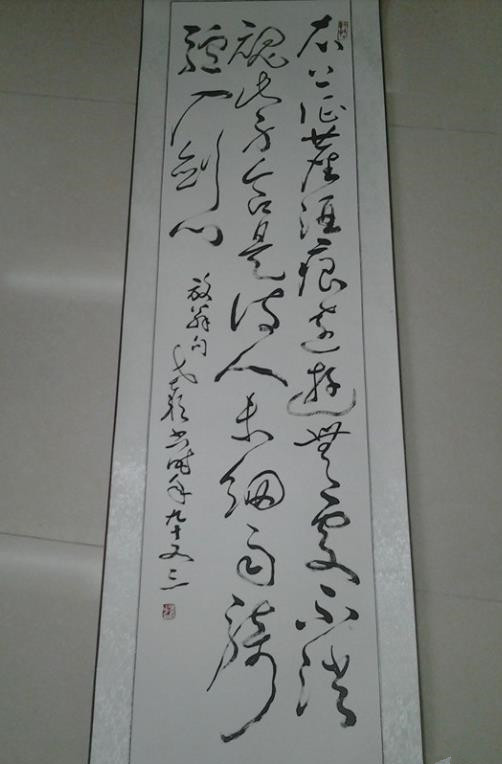 衣上征塵雜酒痕遠遊無處不消
魂此身合是詩人未細雨騎
驢入劍門
放翁句 書時年九十又三